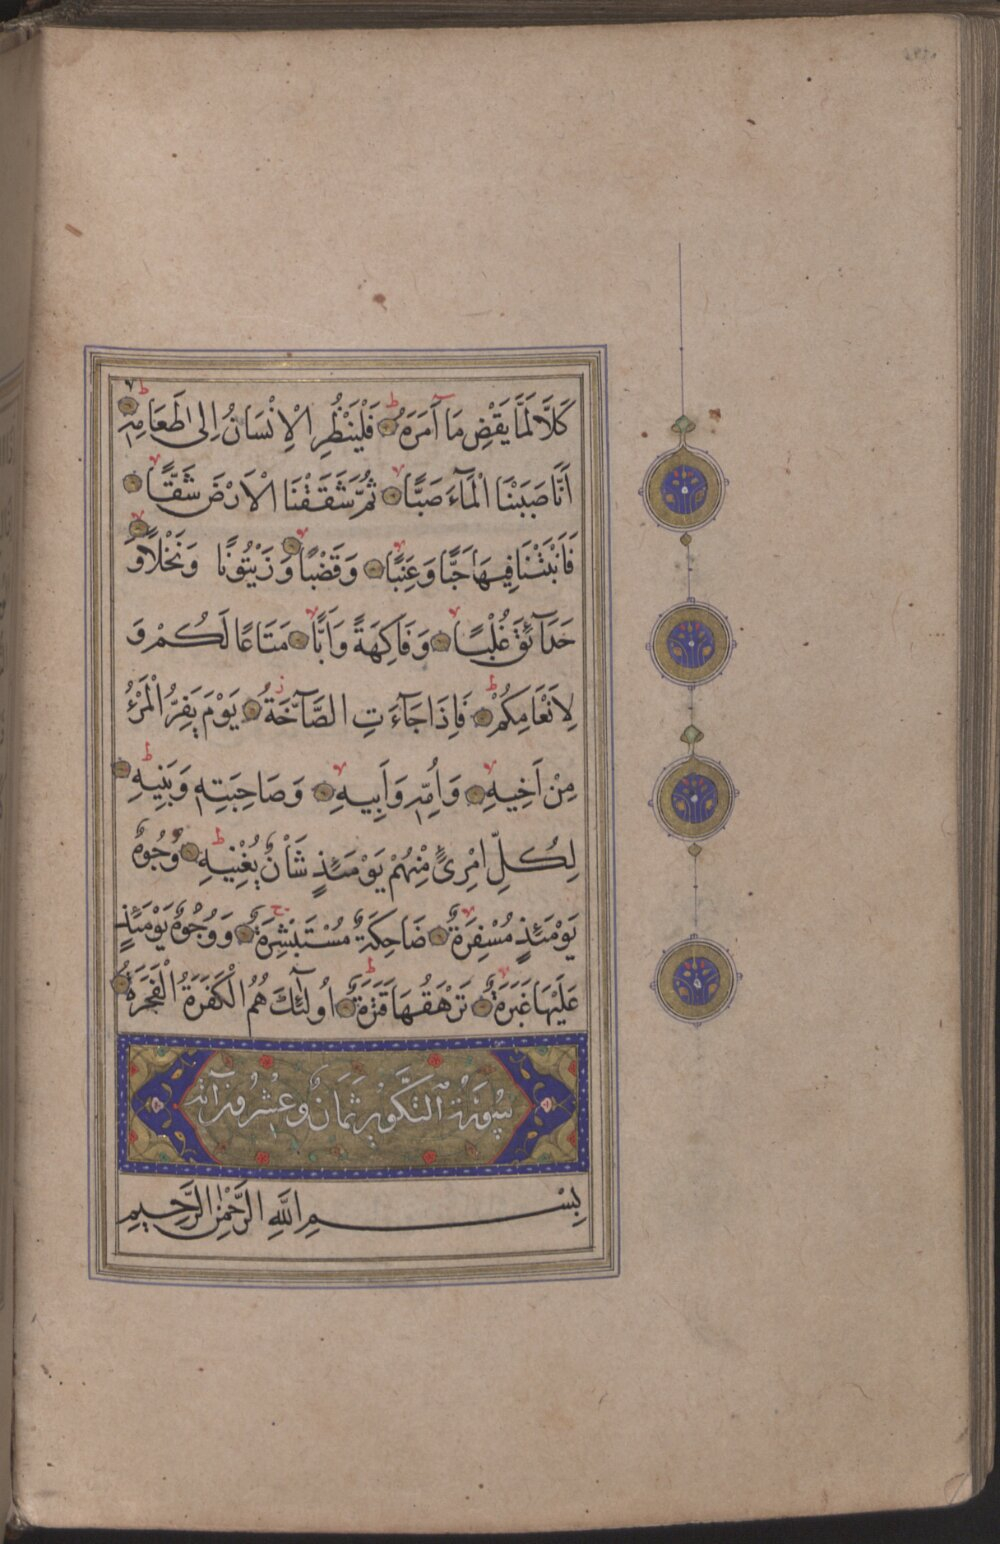 كَلَّا لَمَّا يَقْضِ مَٓا اَمَرَهُ ط فَلْيَنْظُرِ الْاِنْسَانُ اِلٰى طَعَامِهٖ ط
اَنَّا صَبَبْنَا الْمَٓاءَ صَبًّا ثُمَّ شَقَقْنَا الْاَرْضَ شَقًّا
فَاَنْبَتْنَا فِيهَا حَبًّا وَعِنَبًا وَقَضْبًا وَزَيْتُونًا وَنَخْلًا وَ
حَدَٓائِقَ غُلْبًا وَفَاكِهَةً وَاَبًّا مَتَاعًا لَكُمْ وَ
لِاَنْعَامِكُمْ ط فَاِذَا جَٓاءَتِ الصَّٓاخَّةُ ز يَوْمَ يَفِرُّ الْمَرْءُ
مِنْ اَخِيهِ وَاُمِّهٖ وَاَبِيهِ وَصَاحِبَتِهٖ وَبَنِيهِ ط
لِكُلِّ امْرِئٍ مِنْهُمْ يَوْمَئِذٍ شَأْنٌ يُغْنِيهِ ط وُجُوهٌ
يَوْمَئِذٍ مُسْفِرَةٌ ضَاحِكَةٌ مُسْتَبْشِرَةٌ ج وَوُجُوهٌ يَوْمَئِذٍ
عَلَيْهَا غَبَرَةٌ تَرْهَقُهَا قَتَرَةٌ ط اُولٰٓئِكَ هُمُ الْكَفَرَةُ الْفَجَرَةُ
سُورَةُ التَّكْوِيرِ ثَمَانٌ وَعِشْرُونَ آيَة
بِسْمِ اللّٰهِ الرَّحْمٰنِ الرَّحِيمِ